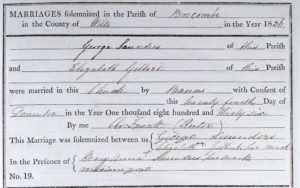 MARRIAGES solemnized in the Parish of Boscombe
in the County of Wilts in the Year 1836
George Saunders of this Parish
and Elizabeth Gilbert of this Parish
were married in this Church by Banns with Consent of
this twenty fourth Day of
December in the Year One thousand eight hundred and Thirty Six
By me
This Marriage was solemnized between us George Saunders
Elizabeth Gilbert her mark
In the Presence of Saunders her mark
No. 19.